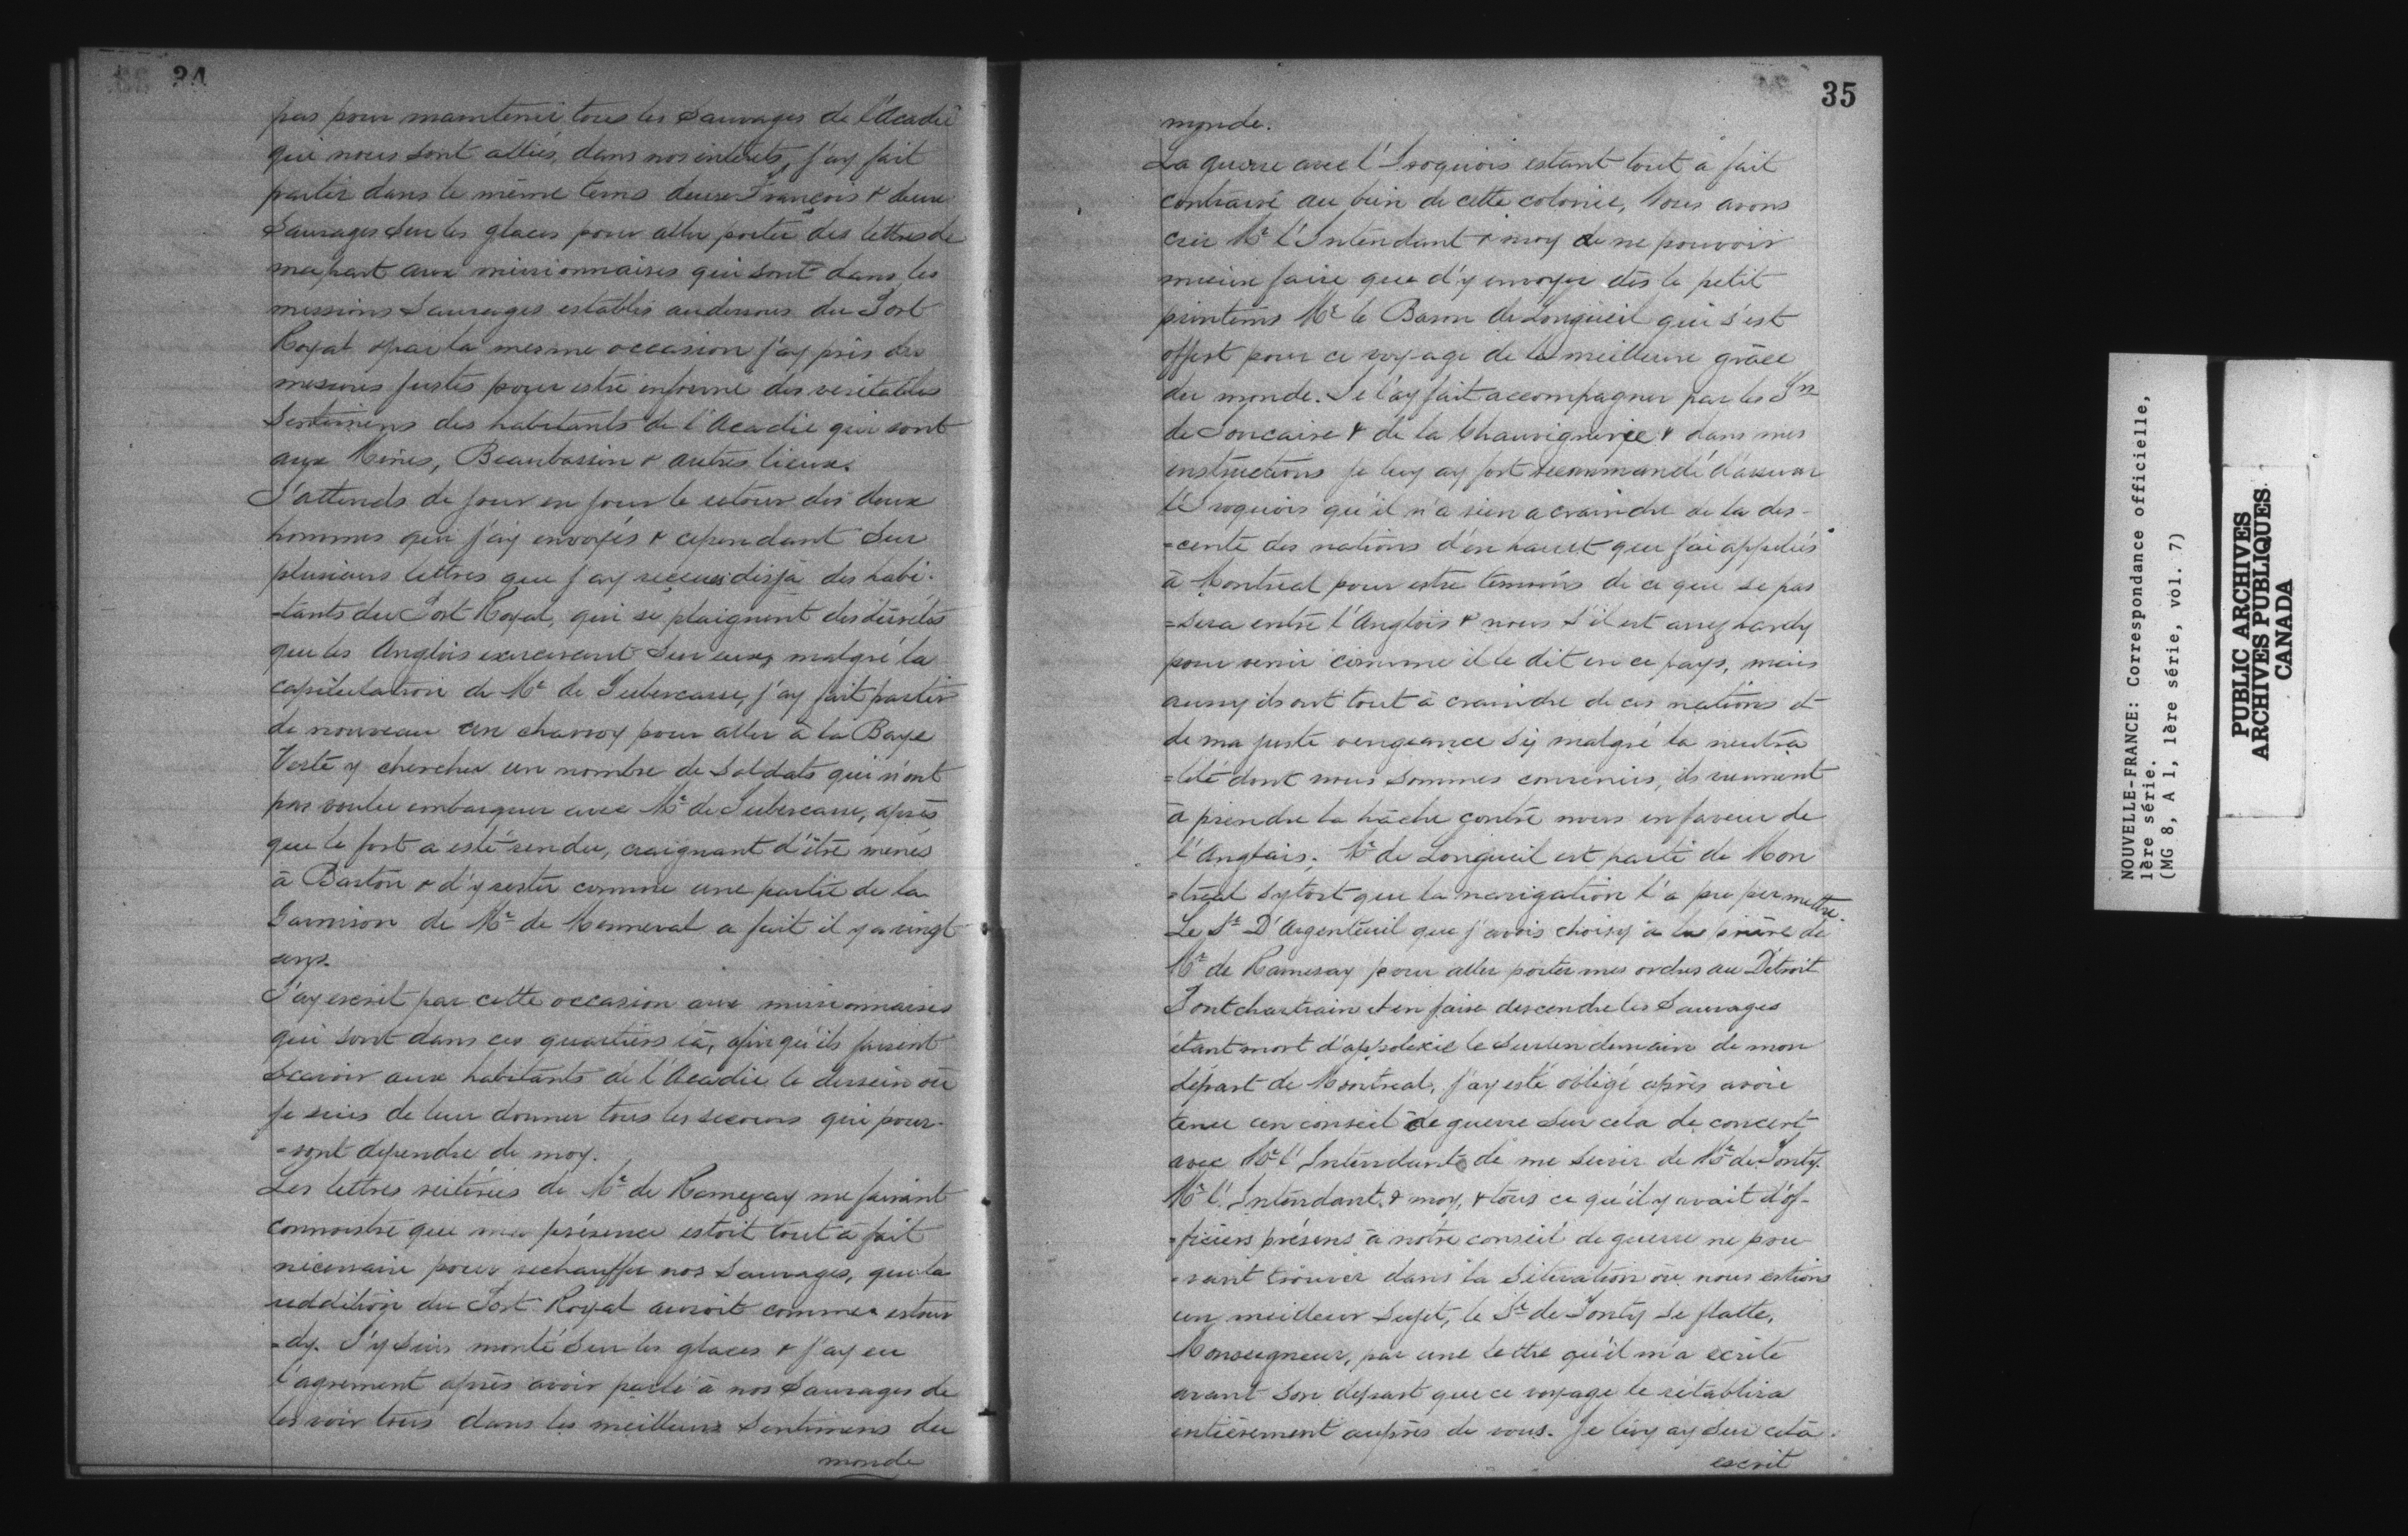 34
pas pour maintenir tous les Sauvages de l'Acadie
qui nous sont alliés, dans nos intérêts, j'ay fait
partir dans le même tems deux François & deux
Sauvages sur les glaces pour aller porter des lettres de
ma part aux missionnaires qui sont dans les
missions Sauvages establis au dessous du Port
Royal & par la mesme occasion j'ay pris des
mesures justes pour estre informé des veritables
Sentimens des habitants de l'Acadie qui sont
aux Mines, Beaubassin & autres lieux.
J'attends de jour en jour le retour des deux
hommes que j'ay envoyés & cependant sur
plusieurs lettres que j'ay reçeues desja des habi-
-tants du Port Royal, qui se plaignent des
que les Anglois exercerent sur eux, malgré la
capitulation de Mr de Subercasse, j'ay fait partir
de nouveau un charroy pour aller à la Baye
Verte y chercher un nombre de Soldats qui n'ont
pas voulu embarquer avec Mr de Subercasse, après
que le fort a esté rendu, craignant d'être menés
à Baston & d'y rester comme une partie de la
Garnison de Mr de Menneval a fait il y a vingt
ans.
J'ay escrit par cette occasion aux missionnaires
qui sont dans ces quartiers là, afin qu'ils fassent
Scavoir aux habitants de l'Acadie le dessein où
je suis de leur donner tous les secours qui pour-
-ront dependre de moy.
Les lettres réiterées de Mr de Ramezay me faisant
connoistre que ma présence estoit tout à fait
nécessaire pour rechauffer nos Sauvages, que la
reddition du Port Royal auroit comme estour
-dy. J'y suis monté sur les glaces & j'ay eu
l'agrement après avoir parlé à nos Sauvages de
les voir tous dans les meilleurs Sentimens du
monde
35
monde.
La guerre avec l'Iroquois estant tout à fait
contraire au bien de cette colonie, Nous avons
crû Mr l'Intendant & moy de ne pouvoir
mieux faire que d'y envoyer dès le petit
printems Mr le Baron de Longüeil qui s'est
offert pour ce voyage de la meilleure grâce
du monde. Je l'ay fait accompagner par les Srs
de Joncaire & de la Chauvignerie & dans mes
instructions je luy ay fort recommandé d'assurer
l'Iroquois qu'il n'a rien a craindre de la des-
-cente des nations d'en haut que j'ai appelées
à Montreal pour estre temoins de ce que se pas
=sera entre l'Anglois & nous s'il est assez hardy
pour venir comme il le dit en ce pays, mais
aussy ils ont tout à craindre de ces nations et
de ma juste vengeance sy malgré la neutra
=lité dont nous sommes convenus, ils viennent
à prendre la hâche contre nous en faveur de
l'Anglais. Mr de Longueil est parti de Mon
-tréal sytost que la navigation l'a pu permettre.
Le Sr D'Argenteuil que j'avois choisy à la prière de
Mr de Ramesay pour aller porter mes ordres au Détroit
Pontchartrain et en faire descendre les Sauvages
étant mort d'apoplexie le surlendemain de mon
départ de Montreal, j'ay esté obligé après avoir
tenu un conseil de guerre sur cela de concert
avec Mr l'Intendant de me servir de Mr de Tonty.
Mr l'Intendant & moy, & tous ce qu'il y avait d'of-
-ficiers présens à nôtre conseil de guerre ne pou
-vant trouver dans la Situation où nous estions
un meilleur Sujet, le Sr de Tonty se flatte,
Monseigneur, par une lettre qu'il m'a écrite
avant son départ que ce voyage le rétablira
entièrement auprès de vous. Je luy ay sur cela
escrit
NOUVELLE-FRANCE: Correspondance officielle,
1ère série.
(MG 8, A 1, 1ère série, vol. 7)
PUBLIC ARCHIVES
ARCHIVES PUBLIQUES
CANADA